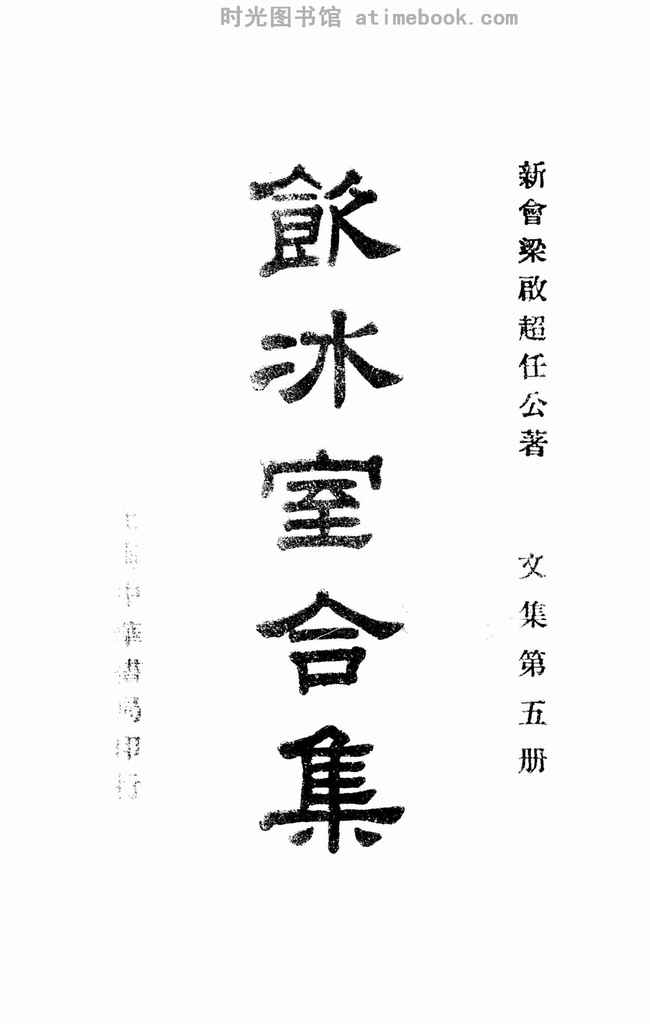 时光图书馆 atimebook.com
新會梁啟超任公著 文集第五册
飲冰室合集
中華書局印行